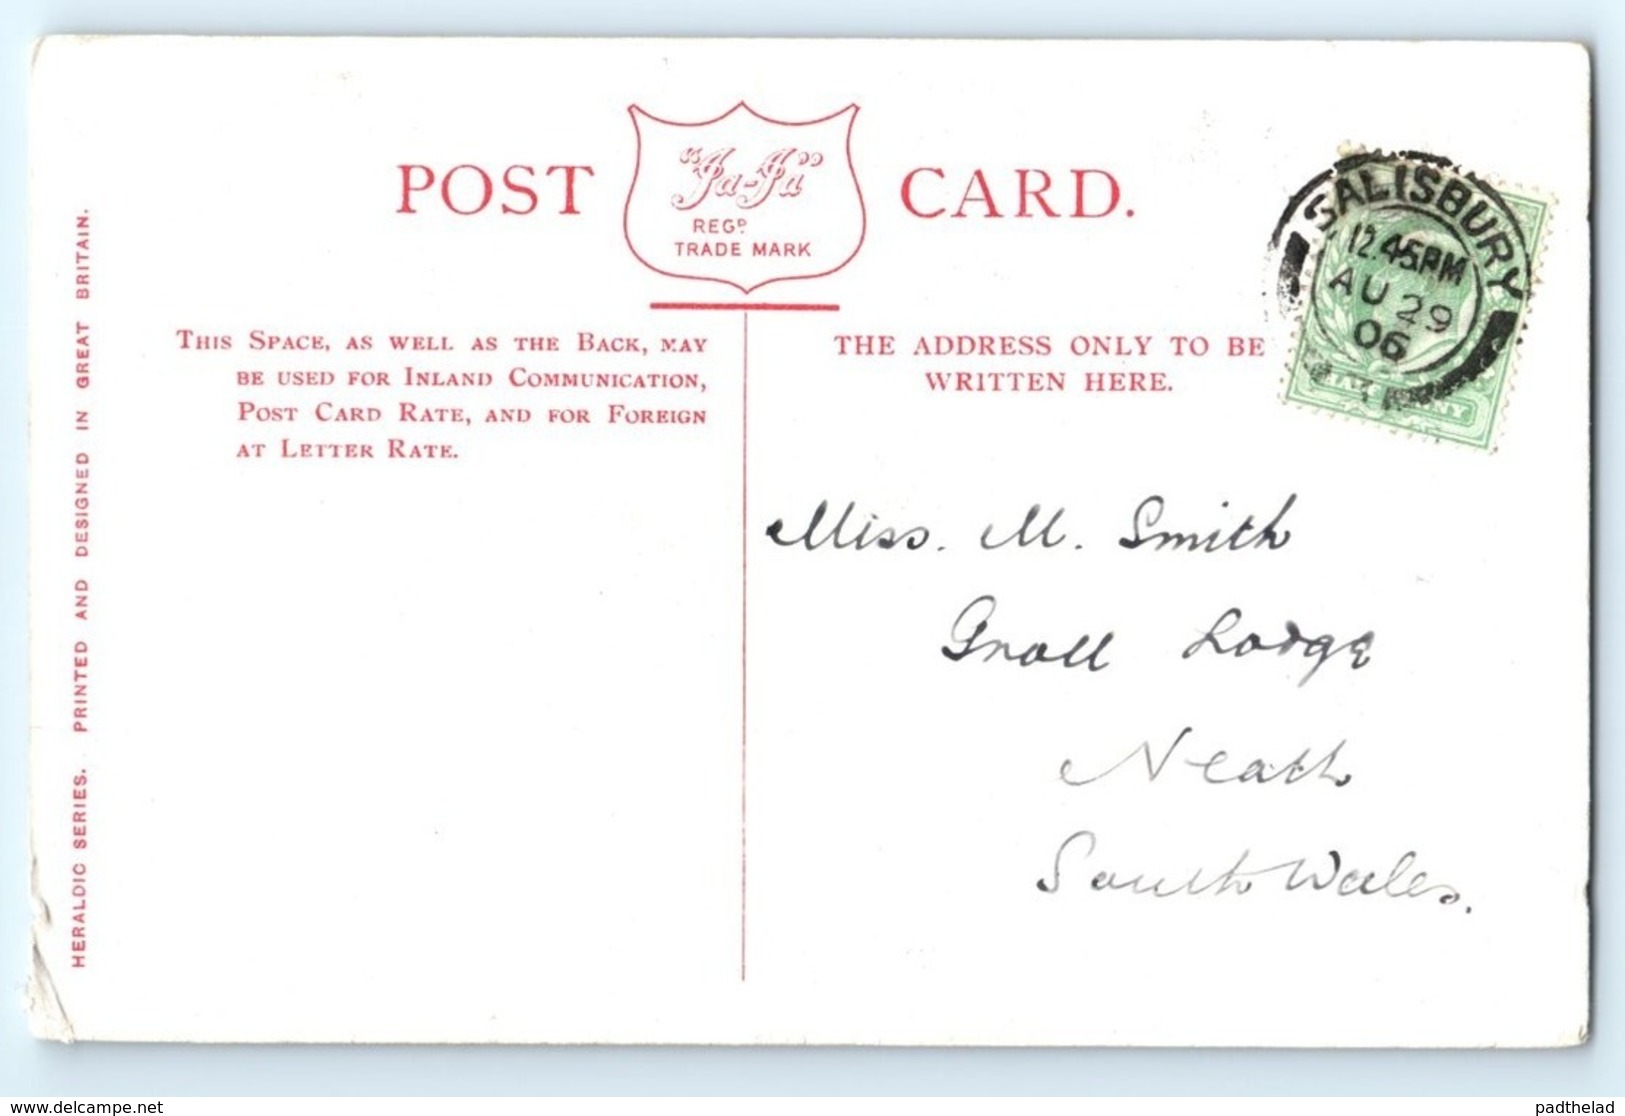 POST CARD.
"Ja-Ja"
REGD
TRADE MARK
THIS SPACE, AS WELL AS THE BACK, MAY
BE USED FOR INLAND COMMUNICATION,
POST CARD RATE, AND FOR FOREIGN
AT LETTER RATE.
THE ADDRESS ONLY TO BE
WRITTEN HERE.
SALISBURY
12.45PM
AU 29
06
Miss. M. Smith
Gnoll Lodge
Neath
South Wales.
HERALDIC SERIES. PRINTED AND DESIGNED IN GREAT BRITAIN.
www.delcampe.net
padthelad